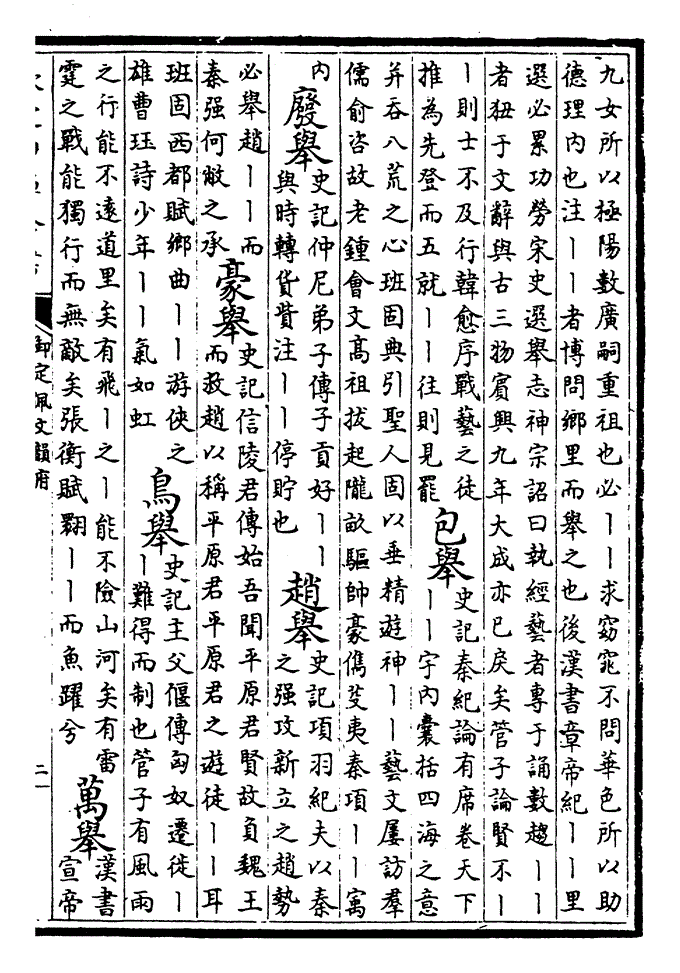 九女所以極陽數廣嗣重祖也必丨丨求窈窕不問華色所以助
德理内也注丨丨者博問鄉里而舉之也後漢書章帝紀丨丨里
選必累功勞宋史選舉志神宗詔曰執經藝者專于誦數趨丨丨
者狃于文辭與古三物賓興九年大成亦已戾矣管子論賢不丨
丨則士不及行韓愈序戰藝之徒
推為先登而五就丨丨往則見罷
包舉
史記秦紀論有席卷天下
丨丨宇内囊括四海之意
并吞八荒之心班固典引聖人固以垂精遊神丨丨藝文屢訪羣
儒俞咨故老鍾會文髙祖拔起隴畝驅帥豪儁芟夷秦項丨丨寓
内
廢舉
史記仲尼弟子傳子貢好丨丨
與時轉貨貲注丨丨停貯也
趙舉
史記項羽紀夫以秦
之强攻新立之趙勢
必舉趙丨丨而
秦强何敝之承
豪舉
史記信陵君傳始吾聞平原君賢故負魏王
而救趙以稱平原君平原君之遊徒丨丨耳
班固西都賦鄉曲丨丨游俠之
雄曹珏詩少年丨丨丨氣如虹
鳥舉
史記主父偃傳匈奴遷徙丨
丨難得而制也管子有風雨
之行能不遠道里矣有飛丨之丨能不險山河矣有雷
霆之戰能獨行而無敵矣張衡賦翾丨丨而魚躍兮
萬舉
漢書
宣帝
御定佩文韻府